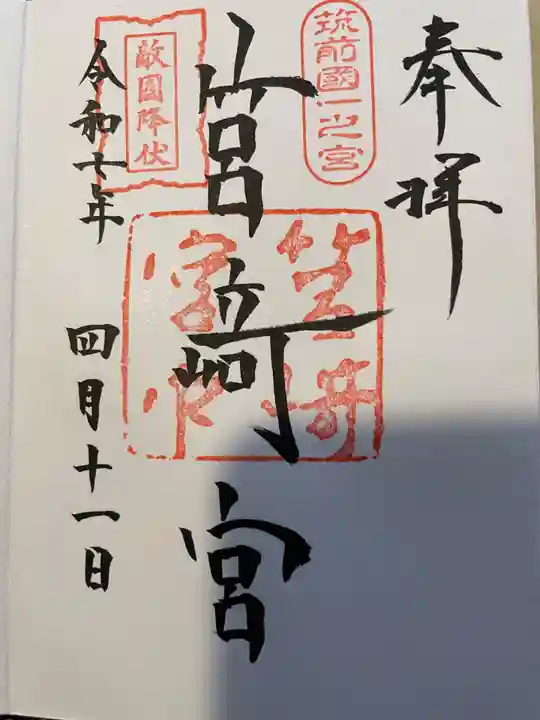 奉拝
筑前國一之宮
筥崎宮
敵國降伏
令和七年 四月十一日